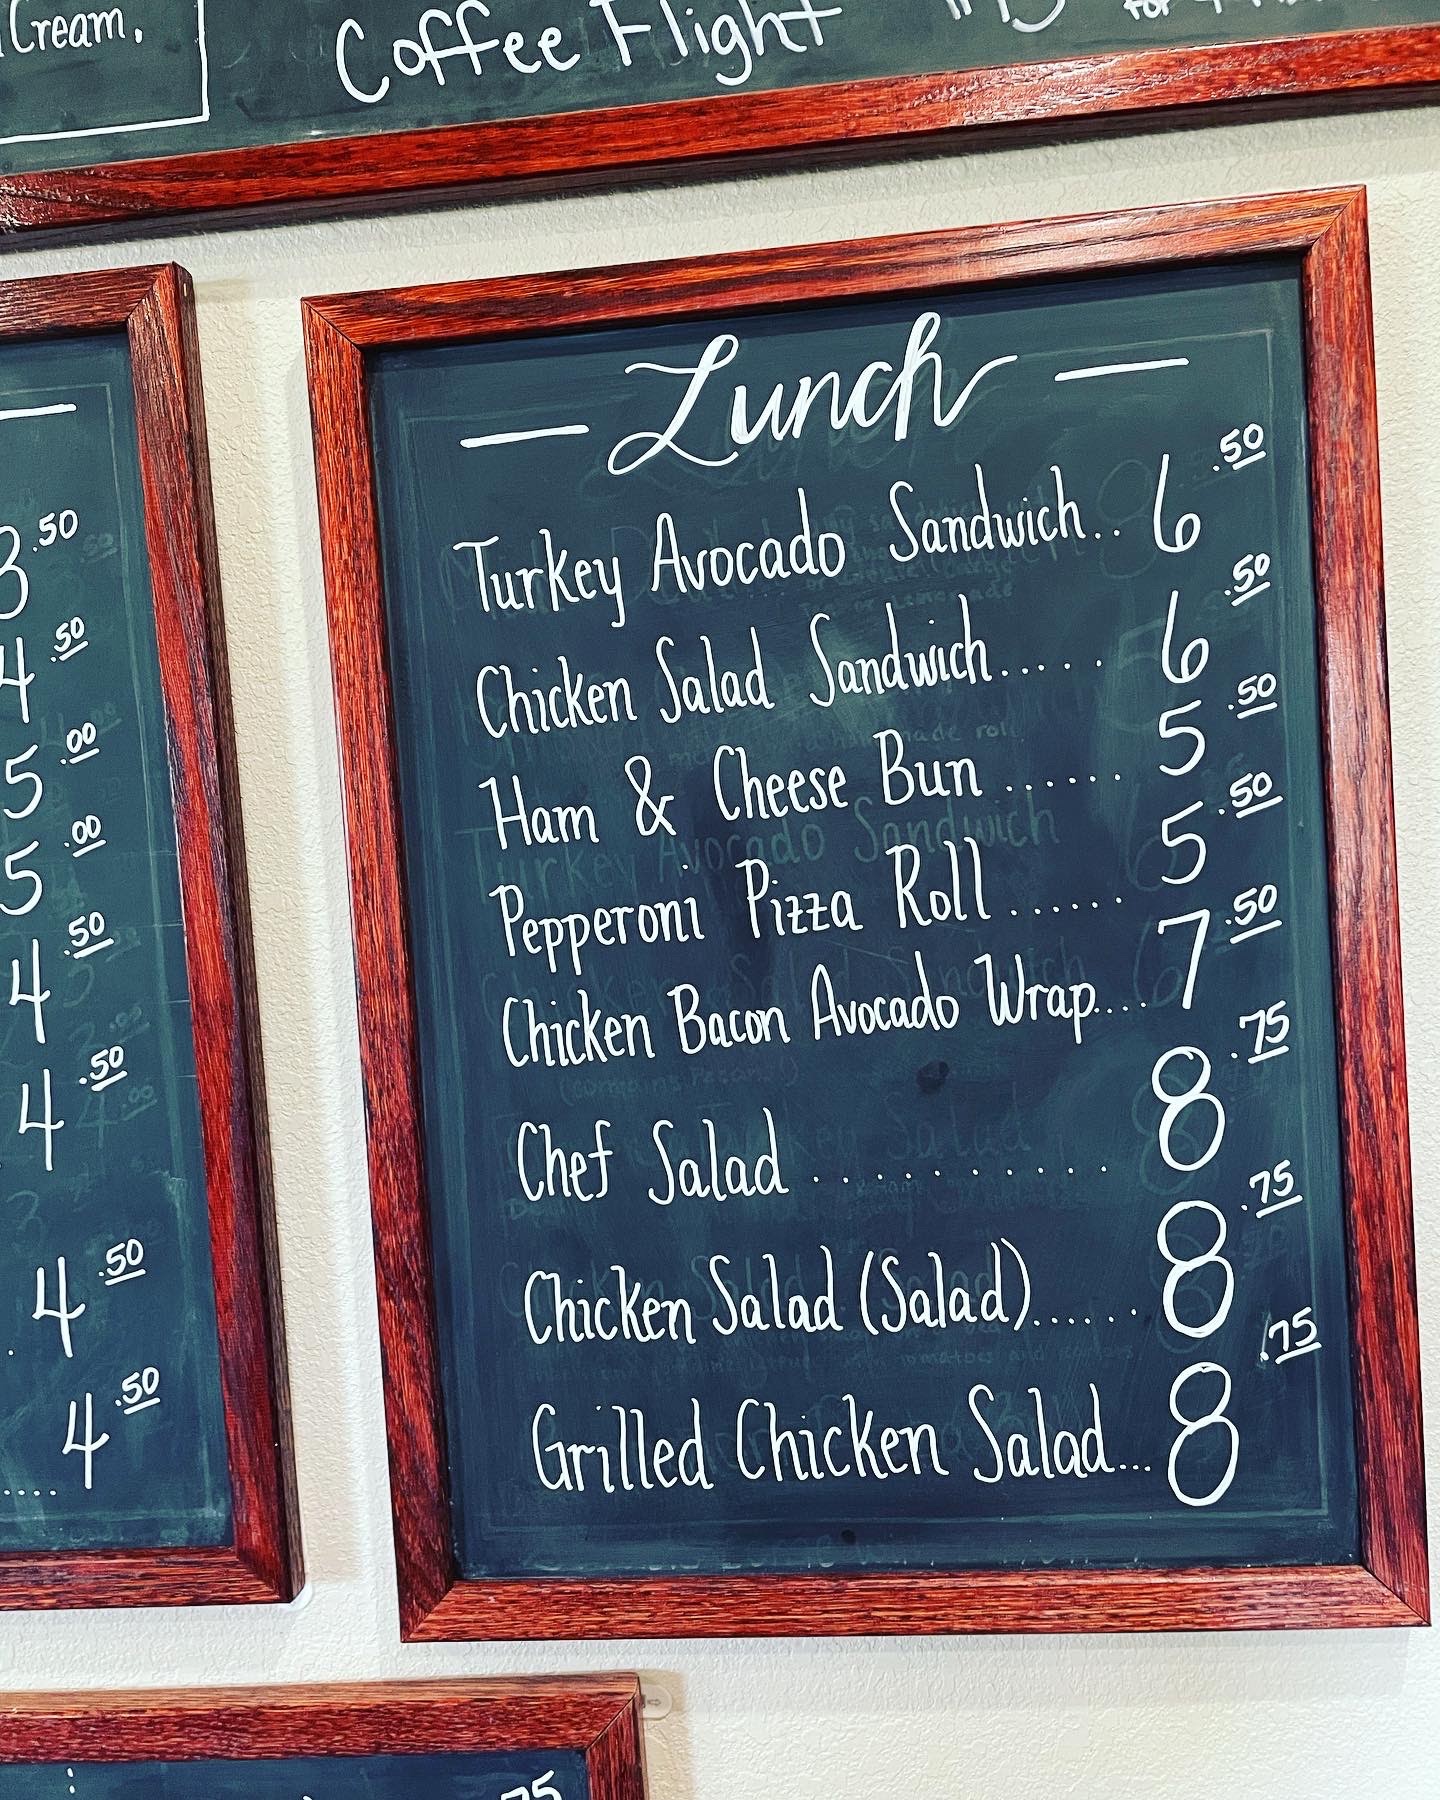 Cream.
Coffee Flight
for
3.50
4.50
5.00
5.00
4.50
4.50
4.50
..... 4.50
Lunch
Turkey Avocado Sandwich.. 6.50
Chicken Salad Sandwich..... 6.50
Ham & Cheese Bun ...... 5.50
Pepperoni Pizza Roll ...... 5.50
Chicken Bacon Avocado Wrap.... 7.50
Chef Salad ............ 8.75
Chicken Salad (Salad)...... 8.75
Grilled Chicken Salad... 8.75
.75